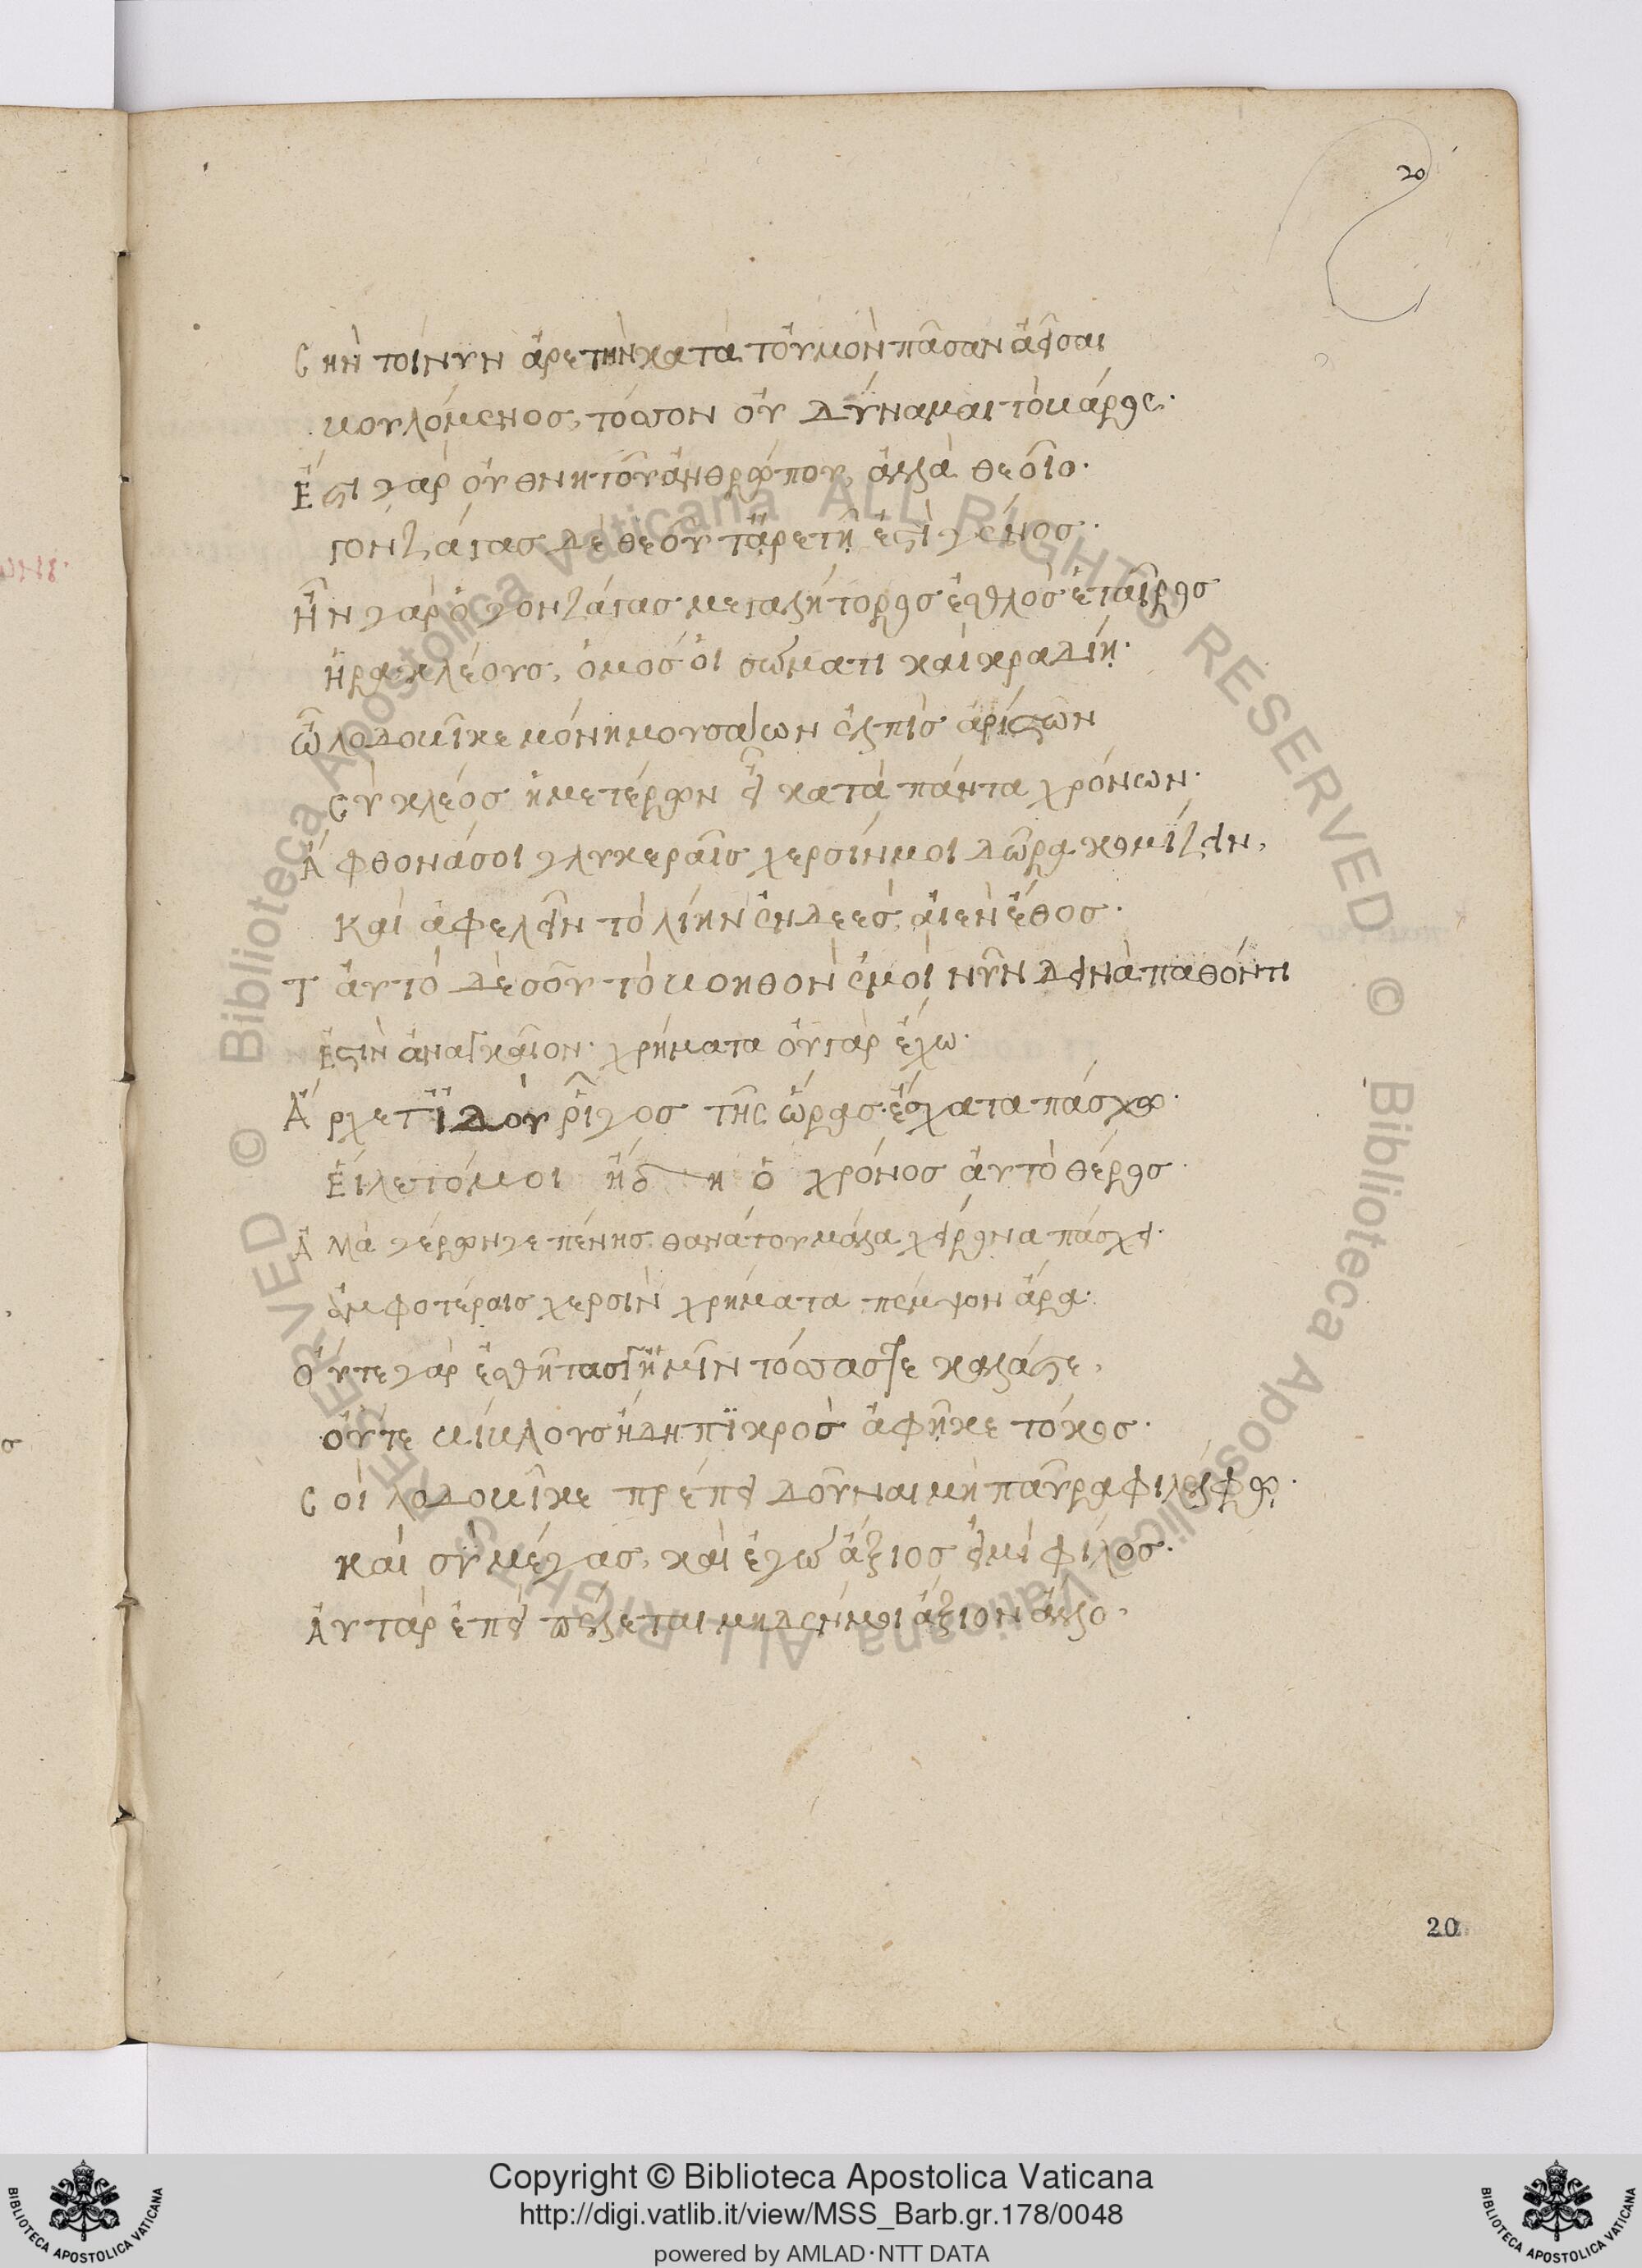 20
Σὴν τοίνυν ἀρετὴν κατὰ τοὐμὸν πᾶσαν ἀεῖσαι
βουλόμενος, τόσσον οὐ δύναμαι τὸ βάρος.
Ἔστι γὰρ οὐ θνητοῦ ἀνθρώπου, ἀλλὰ θεοῖο.
γονζάγας δὲ θεοῦ τἀρετῇ ἐστὶ γένος.
Ἦν γὰρ ὁ γονζάγας μεγαλήτορος ἐσθλὸς ἑταῖρος
Ἡρακλέους, ὁμὸς οἱ σώματι καὶ κραδίῃ.
Ὦ λοδοβῖκε μόνη μουσάων ἐλπὶς ἀρίστων
Σὺ κλέος ἡμετέρων εἶ κατὰ πάντα χρόνων.
Ἄφθονά σοι γλυκεραῖς χερσίν μοι δῶρα κομίζειν,
Καὶ ἀφελεῖν τὸ λίην ἐνδεές, αἰὲν ἔθος.
Ταὐτὸ δὲ σοῦ τὸ βοηθὸν ἐμοὶ νῦν δεινὰ παθόντι
Ἐστὶν ἀναγκαῖον. χρήματα οὐ γὰρ ἔχω.
Ἄρχετ' ἰδοὺ ῥῖγος τῆς ὥρας. ἔσχατα πάσχω.
Εἵλετό μοι ἤδη ὁ χρόνος αὐτὸ θέρος
Ἀμὰ γέρων γε πένης θανάτου μάλα χείρονα πάσχει.
ἀμφοτέραις χερσὶν χρήματα πέμψον ἄρα.
Οὔτε γὰρ ἐσθῆτάς γ' ἡμῖν τόσσας γε καλάς τε,
οὔτε βίβλους ἤδη πϊκρὸς ἀφῆκε τόκος.
Σοὶ λοδοβῖκε πρέπει δοῦναι μὴ παῦρα φιλέλφῳ.
καὶ σὺ μέγας, καὶ ἐγὼ ἄξιος εἰμὶ φίλος.
Αὐτὰρ ἐπεὶ πέλεται μηδέν μοι ἄξιον ἄλλο,
20
Copyright © Biblioteca Apostolica Vaticana
http://digi.vatlib.it/view/MSS_Barb.gr.178/0048
powered by AMLAD·NTT DATA
BIBLIOTECA APOSTOLICA VATICANA
BIBLIOTECA APOSTOLICA VATICANA
© Biblioteca Apostolica Vaticana ALL RIGHTS RESERVED © Biblioteca Apostolica Vaticana ALL RIGHTS RESERVED